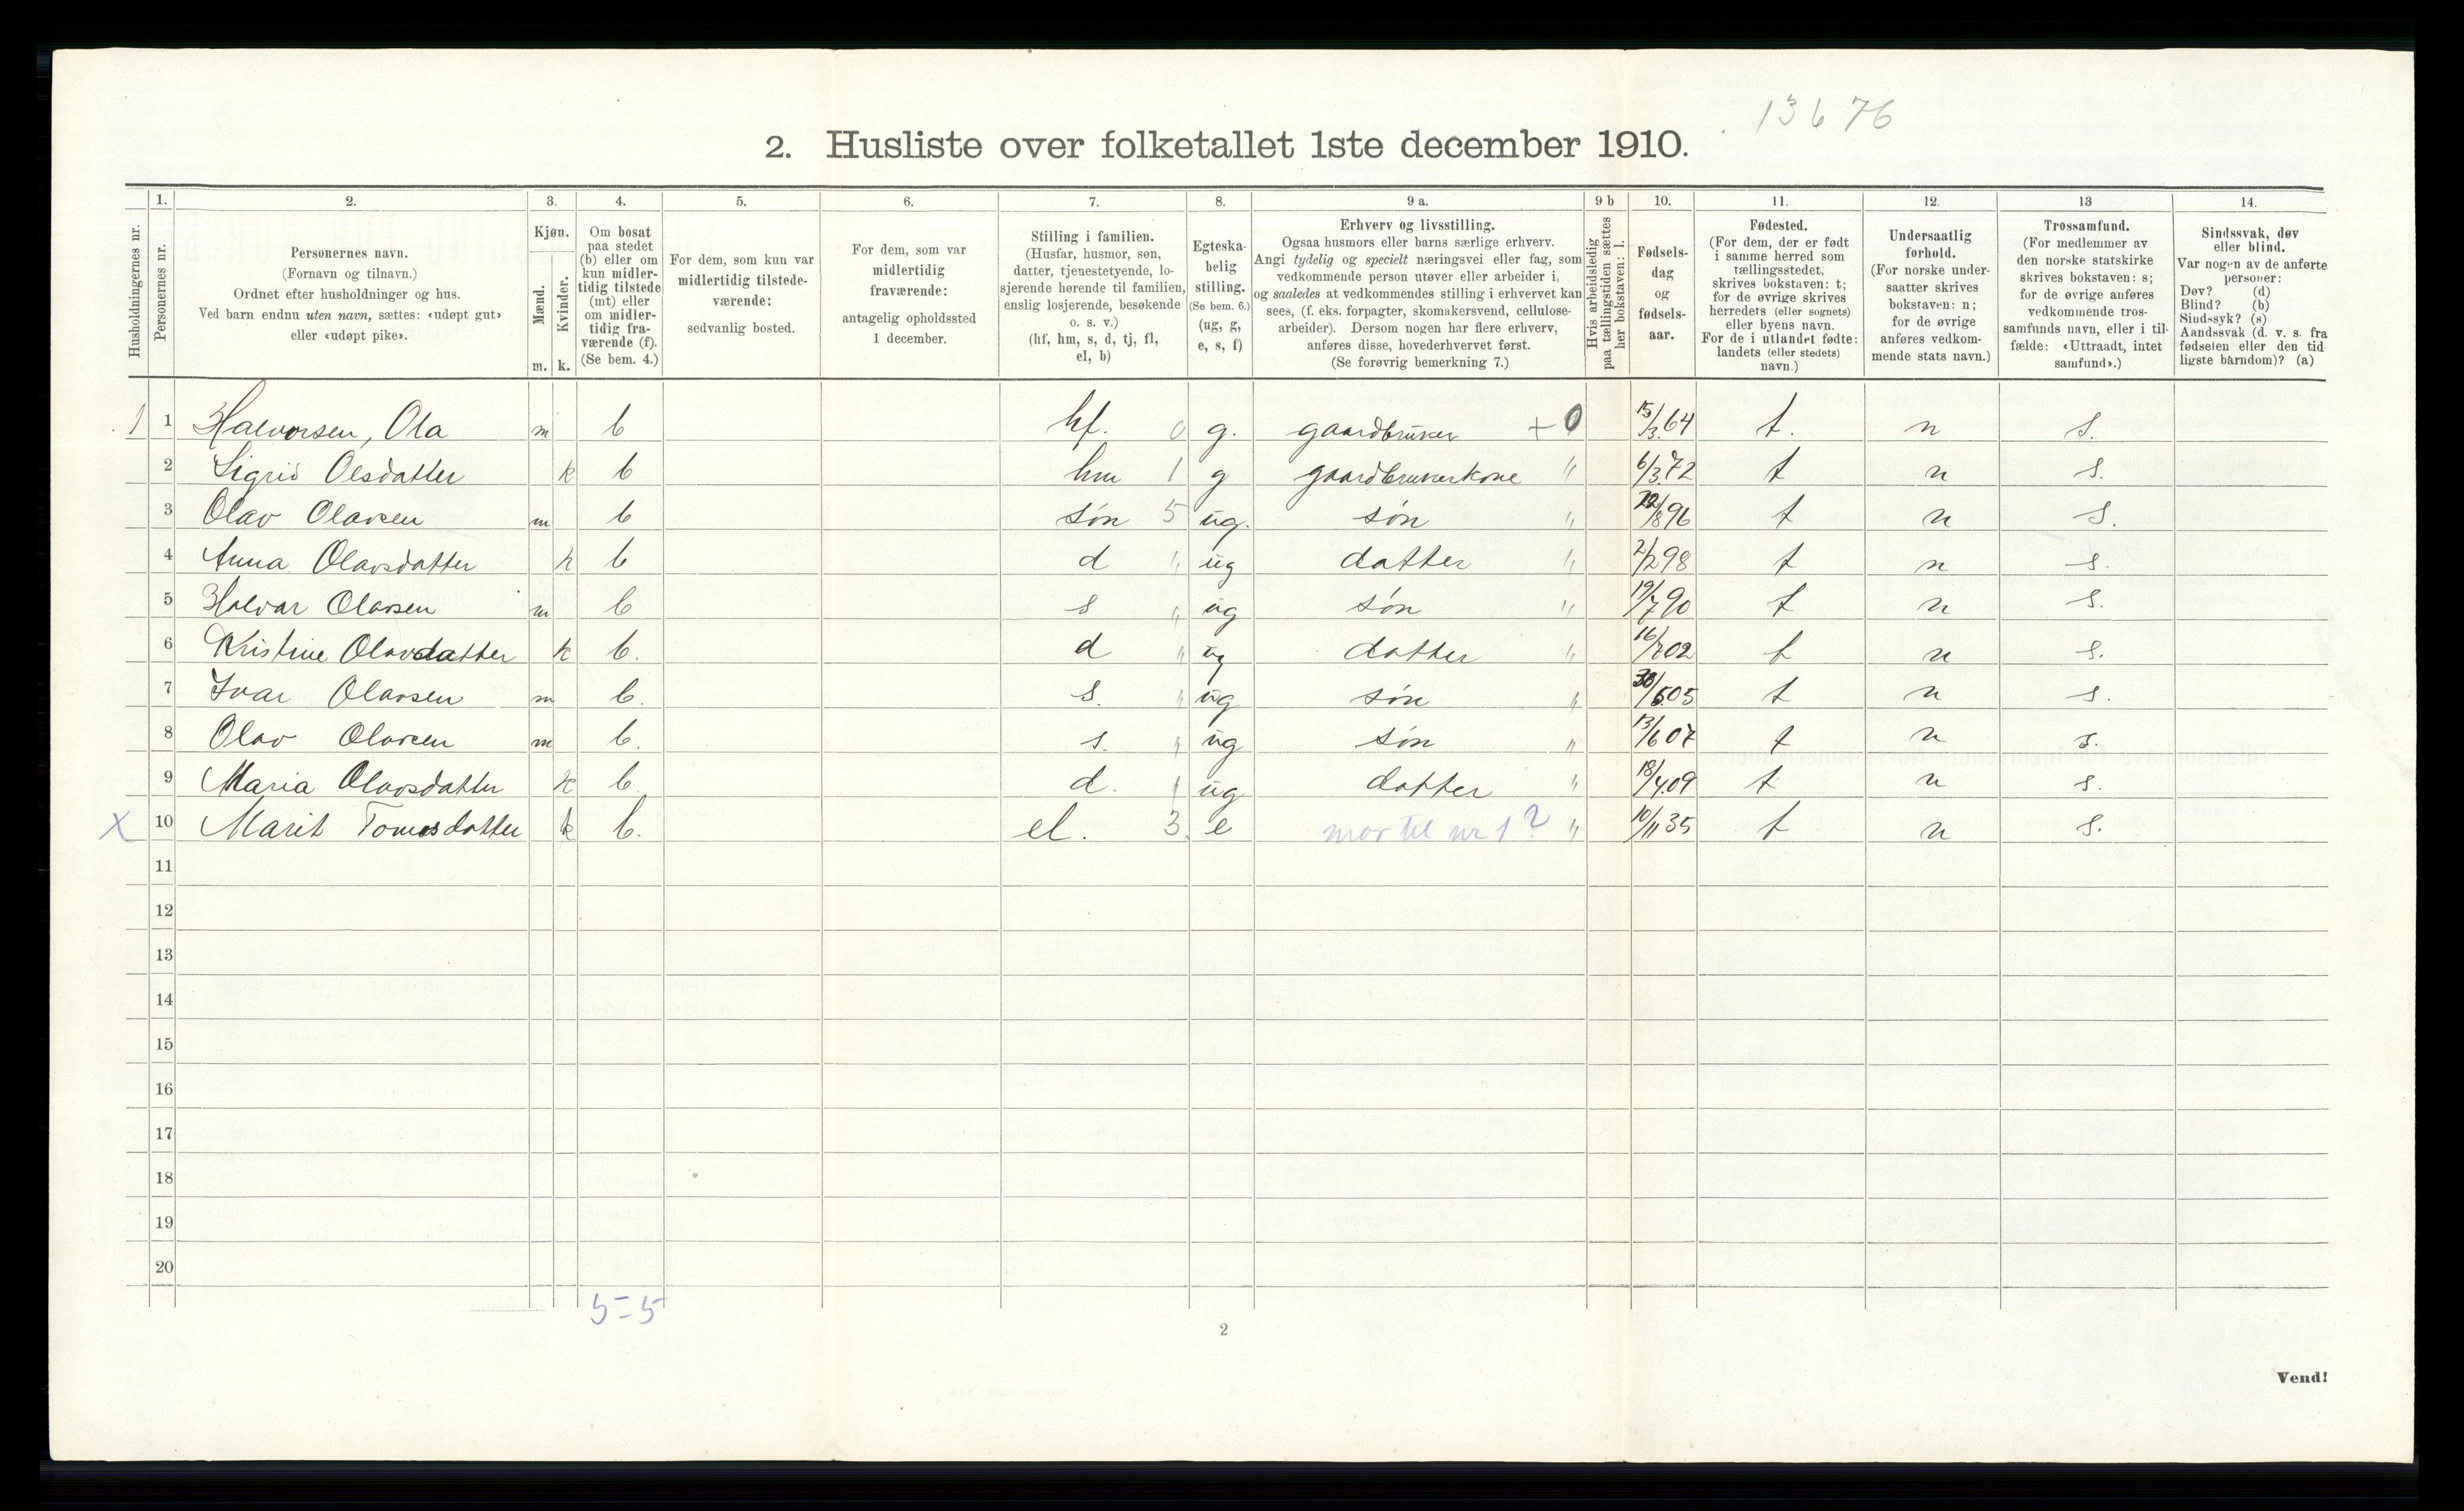 13676
2. Husliste over folketallet 1ste december 1910.
Husholdningernes nr.
1.
Personernes nr.
2.
Personernes navn.
(Fornavn og tilnavn.)
Ordnet efter husholdninger og hus.
Ved barn endnu uten navn, sættes: «udøpt gut»
eller «udøpt pike».
3.
Kjøn.
Mænd.
Kvinder.
m. k.
4.
Om bosat
paa stedet
(b) eller om
kun midler-
tidig tilstede
(mt) eller
om midler-
tidig fra-
værende (f).
(Se bem. 4.)
5.
For dem, som kun var
midlertidig tilstede-
værende:
sedvanlig bosted.
6.
For dem, som var
midlertidig
fraværende:
antagelig opholdssted
1 december.
7.
Stilling i familien.
(Husfar, husmor, søn,
datter, tjenestetyende, lo-
sjerende hørende til familien,
enslig losjerende, besøkende
o. s. v.)
(hf, hm, s, d, tj, fl,
el, b)
8.
Egteska-
belig
stilling.
(Se bem. 6.)
(ug, g,
e, s, f)
9 a.
Erhverv og livsstilling.
Ogsaa husmors eller barns særlige erhverv.
Angi tydelig og specielt næringsvei eller fag, som
vedkommende person utøver eller arbeider i,
og saaledes at vedkommendes stilling i erhvervet kan
sees, (f. eks. forpagter, skomakersvend, cellulose-
arbeider). Dersom nogen har flere erhverv,
anføres disse, hovederhvervet først.
(Se forøvrig bemerkning 7.)
9 b
Hvis arbeidsledig
paa tællingstiden sættes
her bokstaven: l.
10.
Fødsels-
dag
og
fødsels-
aar.
11.
Fødested.
(For dem, der er født
i samme herred som
tællingsstedet,
skrives bokstaven: t;
for de øvrige skrives
herredets (eller sognets)
eller byens navn.
For de i utlandet fødte:
landets (eller stedets)
navn.)
12.
Undersaatlig
forhold.
(For norske under-
saatter skrives
bokstaven: n;
for de øvrige
anføres vedkom-
mende stats navn.)
13
Trossamfund.
(For medlemmer av
den norske statskirke
skrives bokstaven: s;
for de øvrige anføres
vedkommende tros-
samfunds navn, eller i til-
fælde: «Uttraadt, intet
samfund».)
14.
Sindssvak, døv
eller blind.
Var nogen av de anførte
personer:
Døv? (d)
Blind? (b)
Sindssyk? (s)
Aandssvak (d. v. s. fra
fødselen eller den tid
ligste barndom)? (a)
1 1 Halvorsen, Ola m b hf. 0 g. gaardbruker +0 15/3.64 t. n s.
2 Sigrid Olsdatter k b hm 1 g gaardbrukerkone " 6/3.72 t n s.
3 Olav Olavsen m b søn 5 ug. søn " /8 96 t n s.
4 Anna Olavsdatter k b d " ug datter " 2/2 98 t n s.
5 Halvar Olavsen m b s " ug søn " 19/7 90 t n s.
6 Kristine Olavsdatter k b. d " ug datter " 16/ 02 t n s.
7 Ivar Olavsen m b. s. " ug søn " 30/ 05 t n s.
8 Olav Olavsen m b. s. " ug søn " 13/6 07 t n s.
9 Maria Olavsdatter k b d. " ug datter " 18/4.09 t n s.
X 10 Marit Tomasdatter k b. el. 3. e mor til nr 1? " 10/11 35 t n s.
11
12
13
14
15
16
17
18
19
20
5-5
2
Vend!